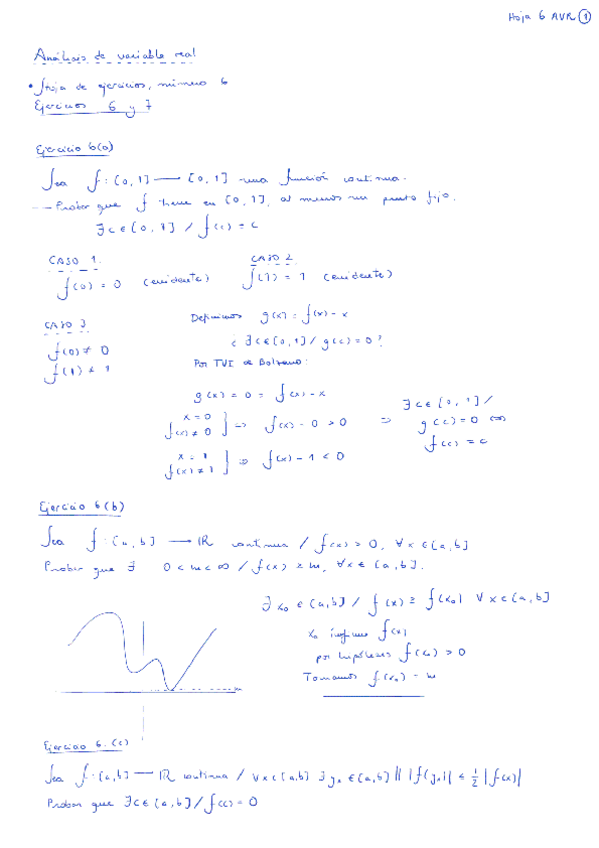 Hoja 6 AVR 1
Análisis de variable real
• Hoja de ejercicios, número 6
Ejercicios 6 y 7
Ejercicio 6(a)
Sea f: [0,1] — [0,1] una función continua.
— Probar que f tiene en [0,1], al menos un punto fijo.
∃ c ∈ [0,1] / f(c) = c
CASO 1.
f(0) = 0 (evidente)
CASO 2
f(1) = 1 (evidente)
CASO 3
f(0) ≠ 0
f(1) ≠ 1
Definimos g(x) = f(x) - x
¿ ∃ c ∈ [0,1] / g(c) = 0 ?
Por TVI de Bolzano:
g(x) = 0 = f(x) - x
x = 0
f(x) ≠ 0 } => f(x) - 0 > 0
x = 1
f(x) ≠ 1 } => f(x) - 1 < 0
=> ∃ c ∈ [0,1] /
g(c) = 0 <=>
f(c) = c
Ejercicio 6(b)
Sea f: [a,b] — IR continua / f(x) > 0, ∀ x ∈ [a,b]
Probar que ∃ 0 < m < ∞ / f(x) ≥ m, ∀ x ∈ [a,b].
∃ x₀ ∈ [a,b] / f(x) ≥ f(x₀) ∀ x ∈ [a,b]
x₀ ínfimo f(x)
por hipótesis f(x₀) > 0
Tomamos f(x₀) = m
Ejercicio 6.(c)
Sea f: [a,b] — IR continua / ∀ x ∈ [a,b] ∃ yₓ ∈ [a,b] || |f(yₓ)| ≤ 1/2 |f(x)|
Probar que ∃ c ∈ [a,b] / f(c) = 0